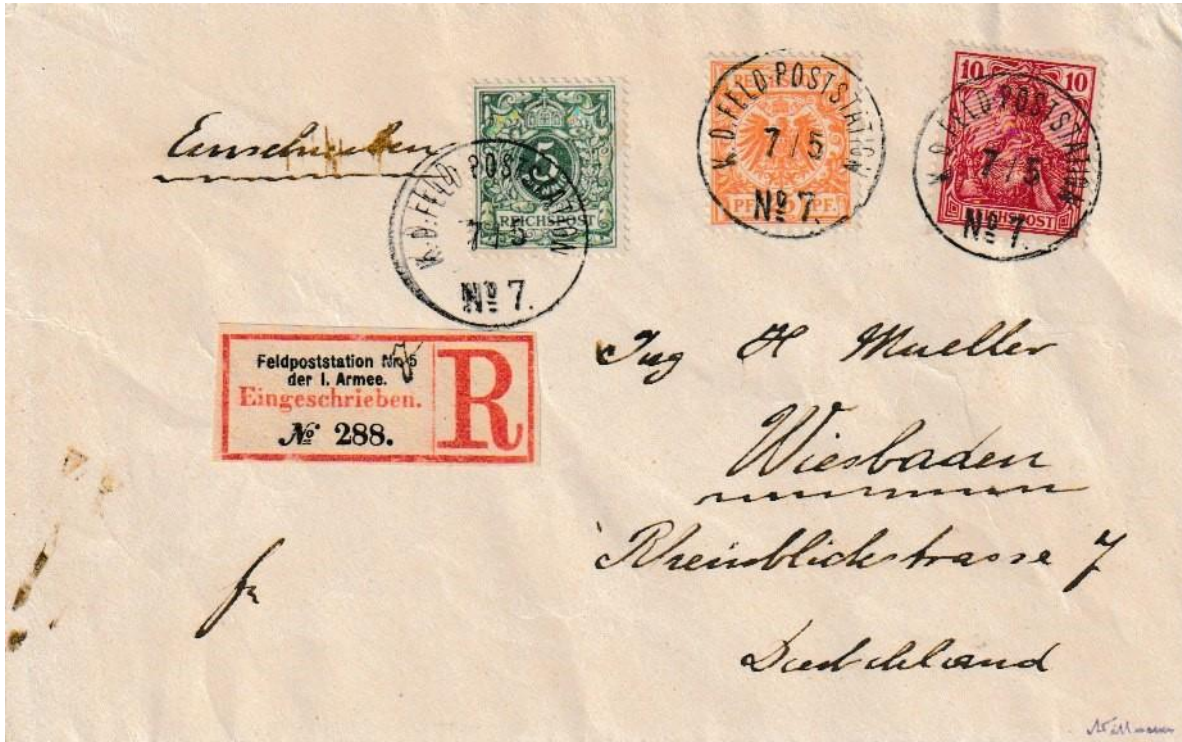 Einschreiben
5
REICHSPOST
K.D.FELD-POSTSTATION
7/5
Nº 7.
PF. PF.
K.D.FELD-POSTSTATION
7/5
Nº 7.
10 10
REICHSPOST
K.D.FELD-POSTSTATION
7/5
Nº 7.
Feldpoststation Nr. 5
7
der I. Armee.
Eingeschrieben.
№ 288.
R
Ing H Mueller
Wiesbaden
Rheinblickstrasse 7
Deutschland
fr